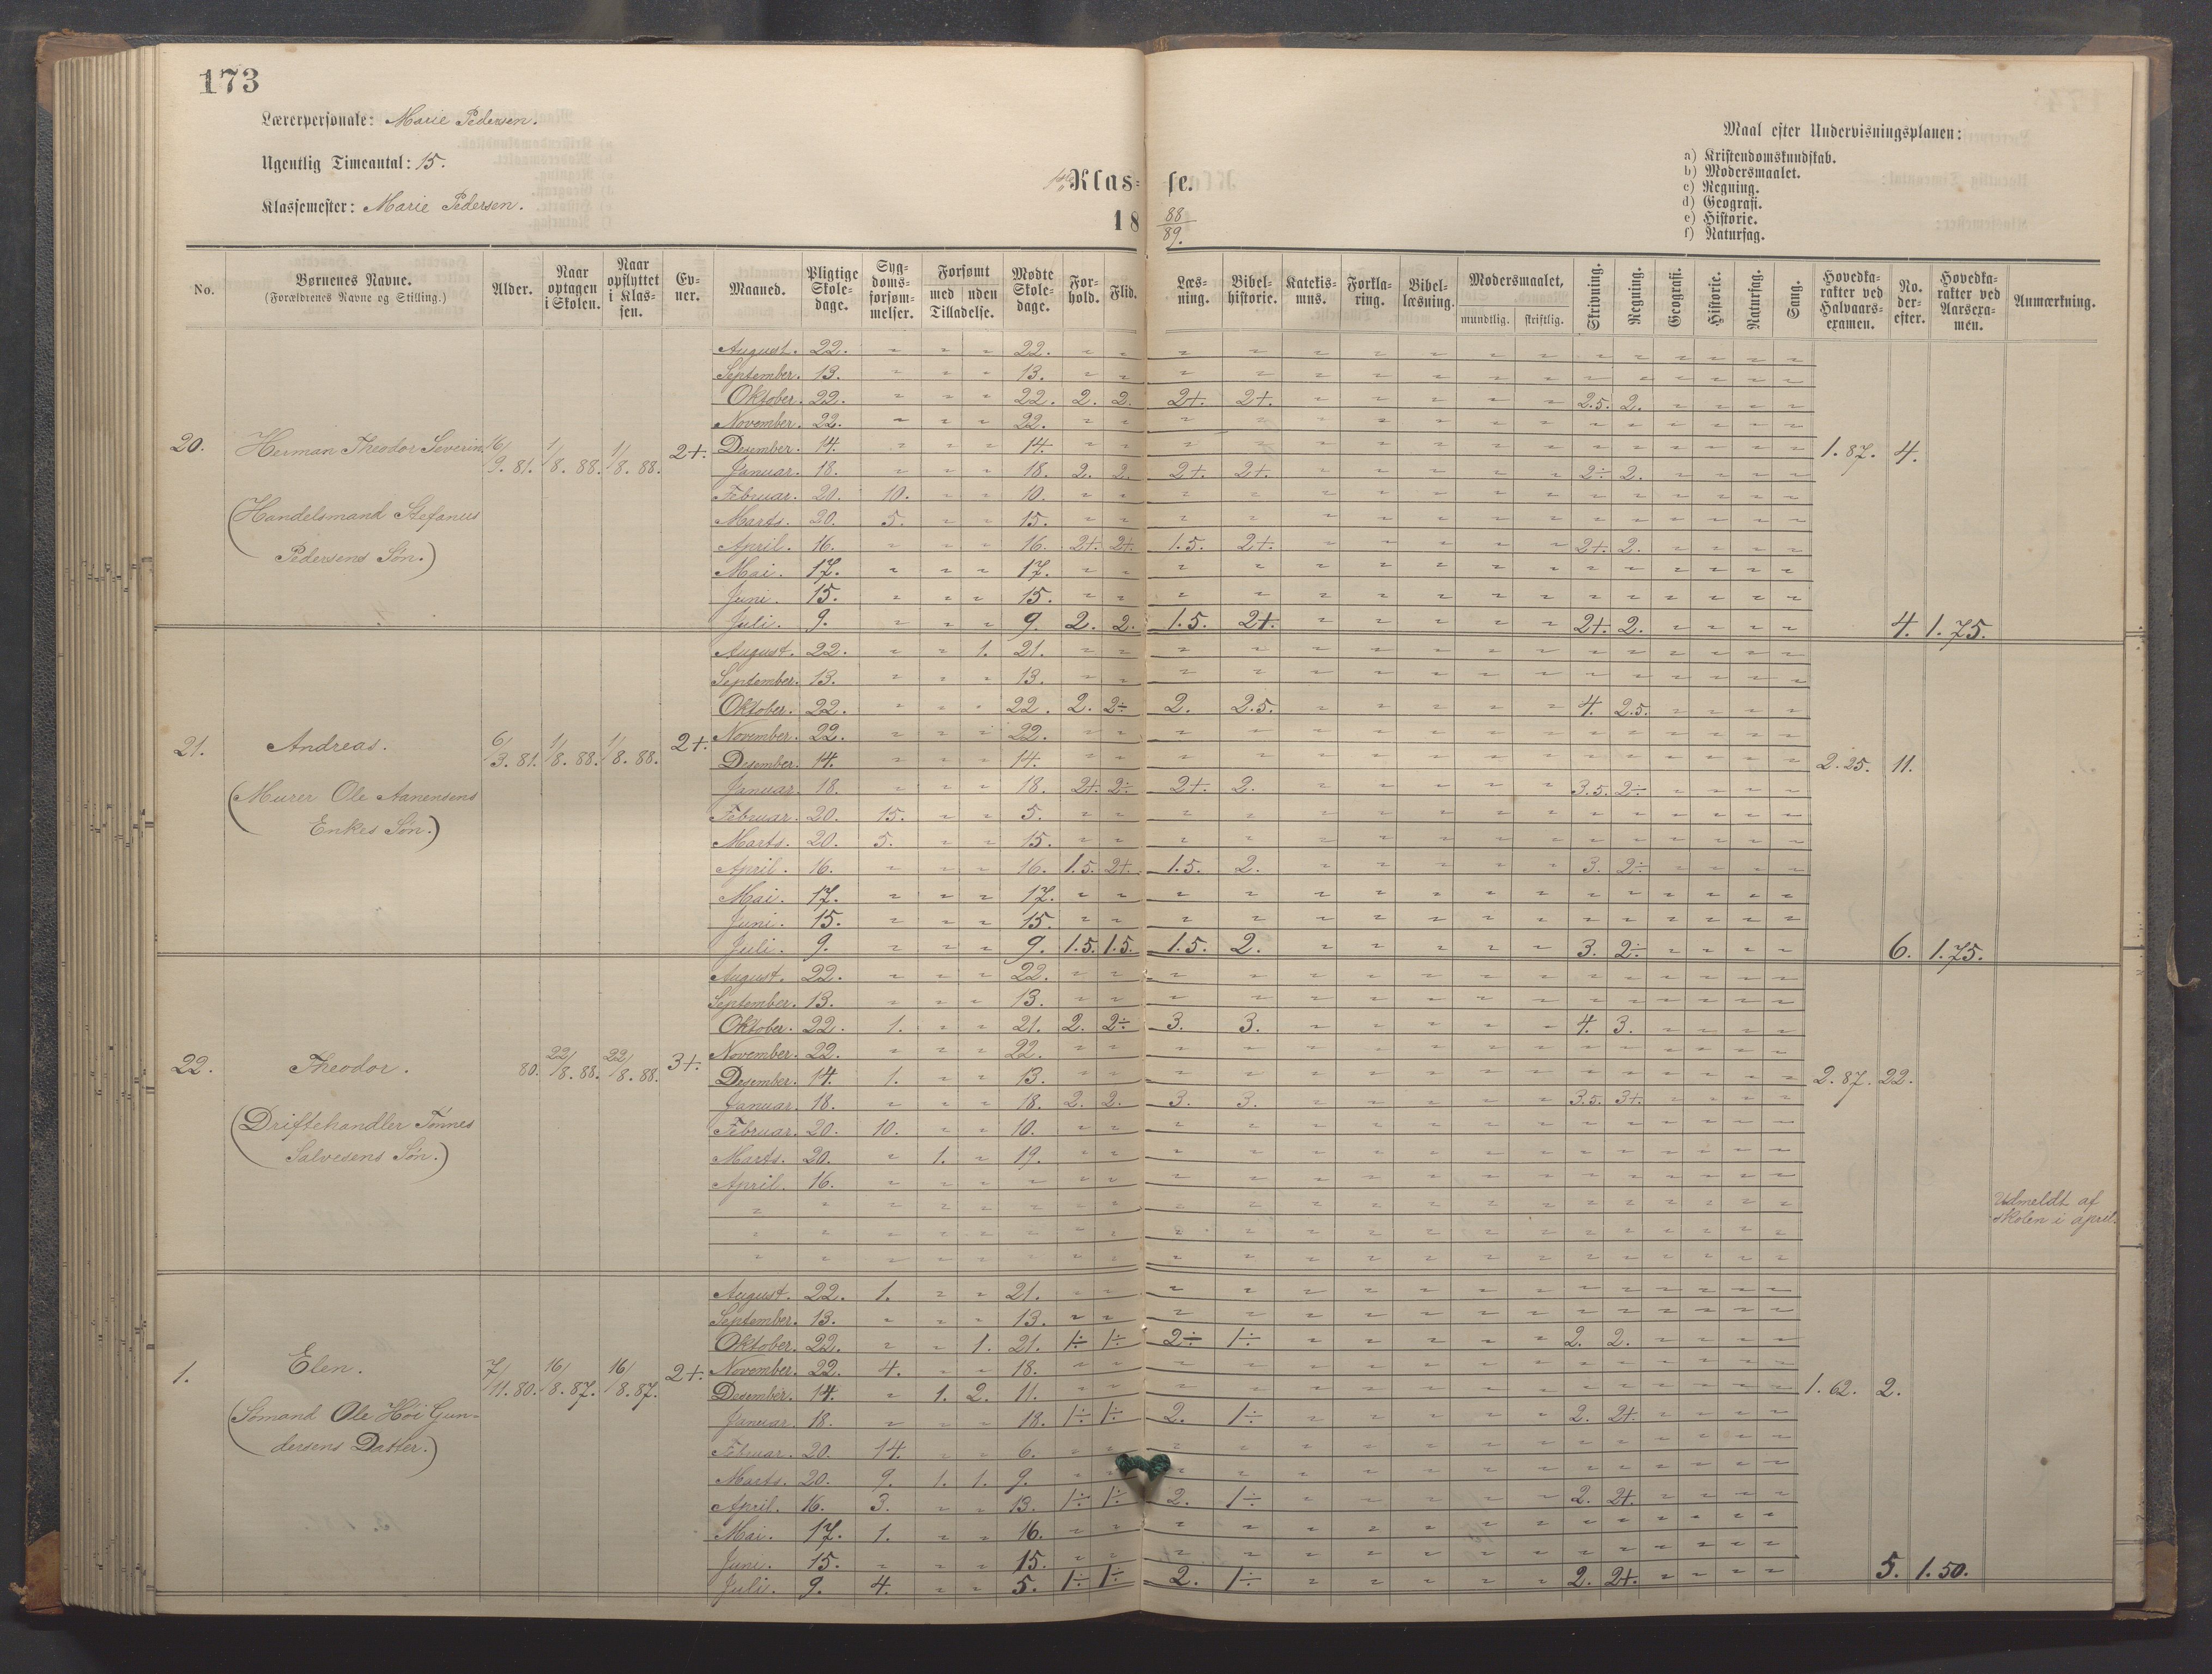 173
Lærerpersonale: Marie Pedersen.
Ugentlig Timeantal: 15.
Klassemester: Marie Pedersen.
1ste Klasse.
18 88/89.
Maal efter Undervisningsplanen:
a) Kristendomskundskab.
b) Modersmaalet.
c) Regning.
d) Geografi.
e) Historie.
f) Naturfag.
No. | Børnenes Navne. (Forældrenes Navne og Stilling.) | Alder. | Naar optagen i Skolen. | Naar opflyttet i Klassen. | Evner. | Maaned. | Pligtige Skoledage. | Sygdomsforsømmelser. | Forsømt med Tilladelse. | uden | Mødte Skoledage. | Forhold. | Flid. | Læsning. | Bibelhistorie. | Katekismus. | Forklaring. | Bibellæsning. | Modersmaalet, mundtlig. | skriftlig. | Skrivning. | Regning. | Geografi. | Historie. | Naturfag. | Sang. | Hovedkarakter ved Halvaarsexamen. | No. derefter. | Hovedkarakter ved Aarsexamen. | Anmærkning.
20. Herman Theodor Severin. 16/9. 81. 1/8. 88. 1/8. 88. 2+. 1.87. 4.
(Handelsmand Stefanus
Pedersens Søn.)
August. 22. 22.
September. 13. 13.
Oktober. 22. 22. 2. 2. 2+. 2+. 2.5. 2.
November. 22. 22.
Desember. 14. 14.
Januar. 18. 18. 2. 2. 2+. 2+. 2÷ 2.
Februar. 20. 10. 10.
Marts. 20. 5. 15.
April. 16. 16. 2+. 2+. 1.5. 2+. 2+. 2.
Mai. 17. 17.
Juni. 15. 15.
Juli. 9. 9. 2. 2. 1.5. 2+. 2+. 2. 4. 1.75.
21. Andreas. 6/3. 81. 1/8. 88. 1/8. 88. 2+. 2.25. 11.
(Murer Ole Aanensens
Enkes Søn.)
August. 22. 1. 21.
September. 13. 13.
Oktober. 22. 22. 2. 2÷ 2. 2.5. 4. 2.5.
November. 22. 22.
Desember. 14. 14.
Januar. 18. 18. 2+. 2÷ 2+. 2. 3.5. 2÷
Februar. 20. 15. 5.
Marts. 20. 5. 15.
April. 16. 16. 1.5. 2+. 1.5. 2. 3. 2÷
Mai. 17. 17.
Juni. 15. 15.
Juli. 9. 9. 1.5. 1.5. 1.5. 2. 3. 2÷ 6. 1.75.
22. Theodor. 80. 22/8. 88. 22/8. 88. 3+. 2.87. 22.
(Driftehandler Tønnes
Salvesens Søn.)
August. 22. 22.
September. 13. 13.
Oktober. 22. 1. 21. 2. 2÷ 3. 3. 4. 3.
November. 22. 22.
Desember. 14. 1. 13.
Januar. 18. 18. 2. 2. 3. 3. 3.5. 3+.
Februar. 20. 10. 10.
Marts. 20. 1. 19.
April. 16.
Udmeldt af
skolen i april.
1. Elen. 7/11. 80. 16/8. 87. 16/8. 87. 2+. 1.62. 2.
(Sømand Ole Høi Gun-
dersens Datter.)
August. 22. 1. 21.
September. 13. 13.
Oktober. 22. 1. 21. 1÷ 1÷ 2÷ 1÷ 2. 2.
November. 22. 4. 18.
Desember. 14. 1. 2. 11.
Januar. 18. 18. 1÷ 1÷ 2. 1÷ 2. 2+.
Februar. 20. 14. 6.
Marts. 20. 9. 1. 1. 9.
April. 16. 3. 13. 1÷ 1÷ 2. 1÷ 2. 2+.
Mai. 17. 1. 16.
Juni. 15. 15.
Juli. 9. 4. 5. 1÷ 1÷ 2. 1÷ 2. 2+. 5. 1.50.